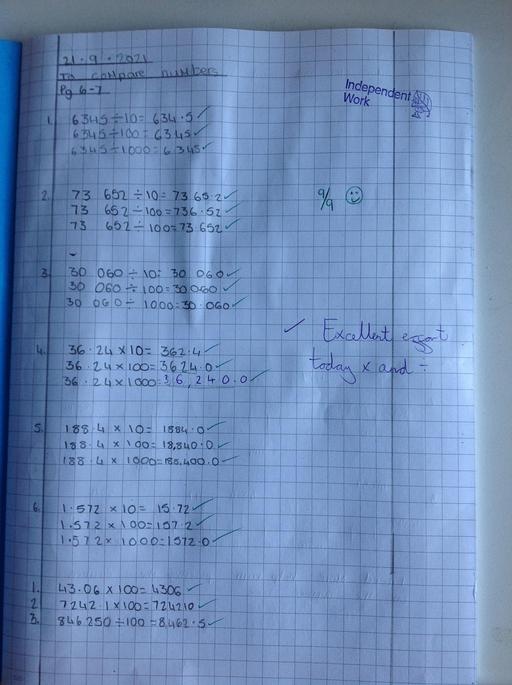 21.9.2021
To compare numbers
Pg 6-7
Independent
Work
1. 6345÷10= 634.5 ✓
6345÷100= 63 45 ✓
6345÷1000= 6 345 ✓
2. 73 652 ÷10= 73 65.2 ✓
73 652 ÷100=736.52 ✓
73 652÷ 100=73 652 ✓
9/9 ☺
3. 30 060 ÷ 10= 30 060 ✓
30 060 ÷ 100=30 060 ✓
30 060÷ 1000=30.060 ✓
✓ Excellent effort
today x and ÷
4. 36.24 x 10= 362.4 ✓
36.24 x100= 3624.0 ✓
36.24 x1000=36,240.0 ✓
5. 188.4 x 10= 1884.0 ✓
188.4 x 100= 18,840.0 ✓
188.4 x 1000=188,400.0 ✓
6. 1.572 x 10= 15.72 ✓
1.572 x 100=157 2 ✓
1.572x 1000=1572.0 ✓
1. 43.06 x100= 4306 ✓
2 7242.1x100=724210 ✓
3. 846 250÷100=8,462.5 ✓